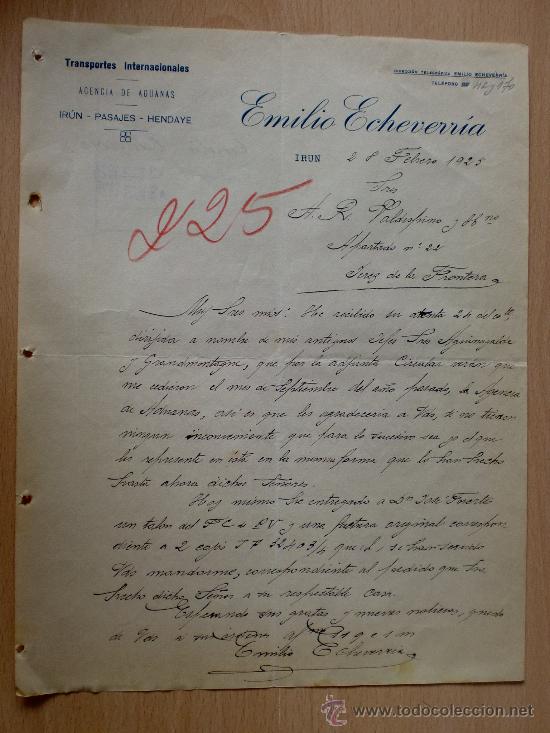 Transportes Internacionales
AGENCIA DE ADUANAS
IRÚN - PASAJES - HENDAYE
DIRECCIÓN TELEGRÁFICA EMILIO ECHEVERRÍA
TELÉFONO
Emilio Echeverría
IRUN 28 Febrero 1925
225
Sres
A. R. Valdespino y Hno
Apartado nº 22
Jerez de la Frontera
Muy Sres mios: He recibido su atenta 24 del cte,
dirijida a nombre de mis antiguos Jefes Sres
y Grandmontagne, que por la adjunta Circular verán que
me cedieron el mes de Septiembre del año pasado, la Agencia
de Aduanas, asi es que les agradeceria a Vds, si no tienen
ningun inconveniente que para lo sucesivo sea yo el que
les represente en esta en la misma forma que lo han hecho
hasta ahora dichos Señores.
Hoy mismo he entregado a Dn José Fuerte
un talon del FC de GV y una factura original correspon
diente a 2 cajas JF 32403/4 que se han servido
Vds mandarme, correspondiente al pedido que ha
hecho dicho Señor a su respetable casa.
Esperando sus gratas y nuevas noticias, quedo
de Vds
Emilio Echeverria
todocoleccion
www.todocoleccion.net